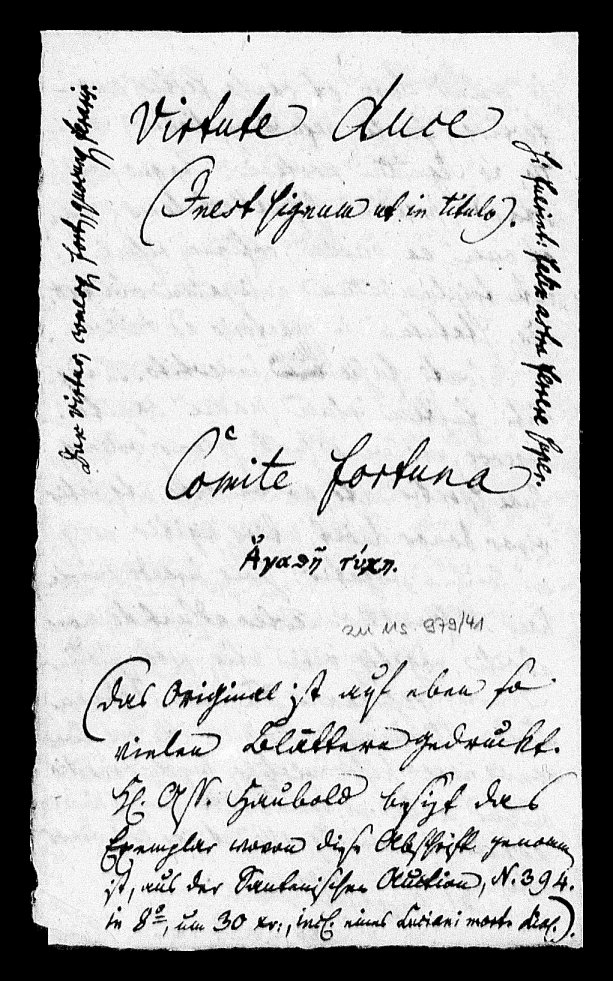 Virtute Duce
(Inest signum ut in titulo).
Dux virtus, comes
felix astra ferere super.
Comite fortuna
Ἀγαθῇ τύχῃ.
zu Ms. 979/41
(Das Original ist auf eben so
vielen Blättern gedruckt.
H. Haubold besizt das
Exemplar wovon diese Abschrift genomm
ist, aus der Santenischen Auction, N. 394.
in 8º, um 30 xr:, incl. eines Luciani mort. dial.).